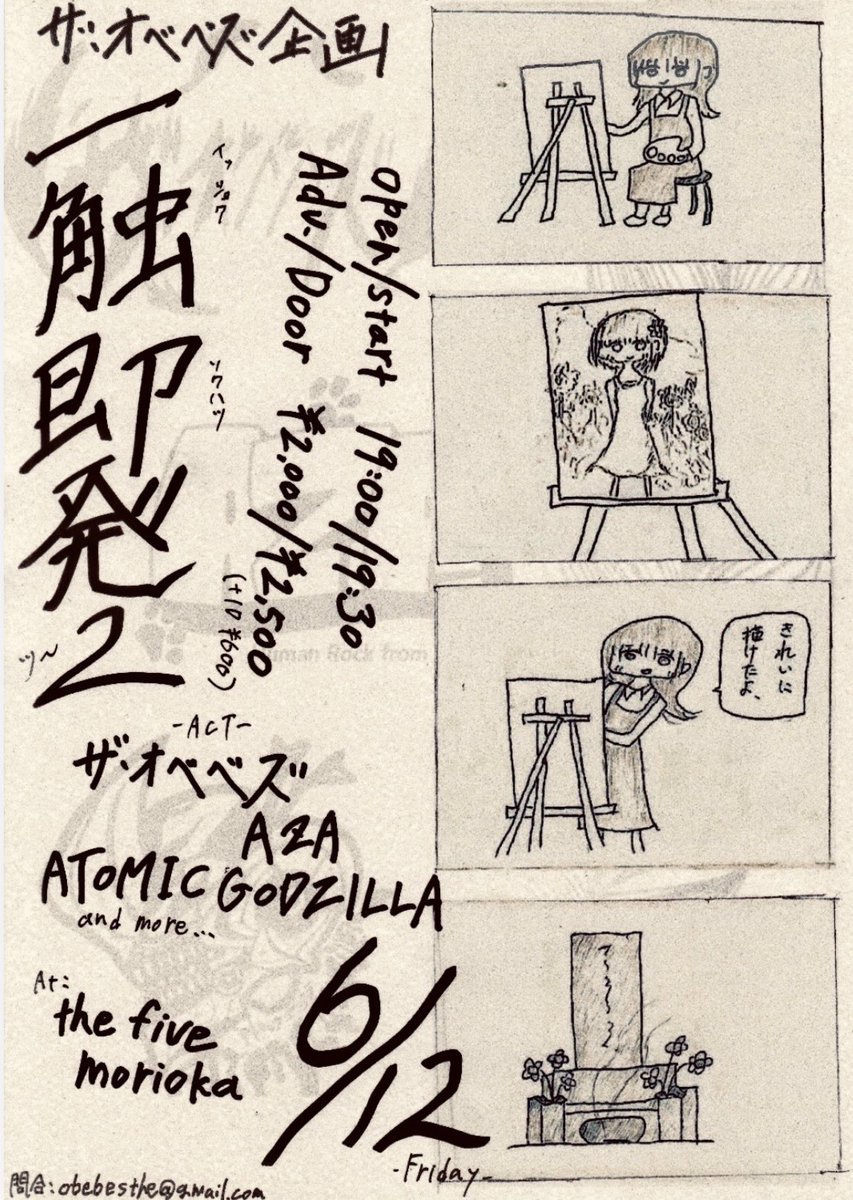 ザ・オベベズ企画
一触即発2
イッショク
ソクハツ
ツ〜
open/start 19:00/19:30
Adv./Door ¥2,000/¥2,500
(+1D ¥600)
-ACT-
ザ・オベベズ
AZA
ATOMIC GODZILLA
and more...
At:
the five
morioka
6/12
-Friday-
問合:obebesthe@gmail.com
きれいに
描けたよ、
uman Rock from